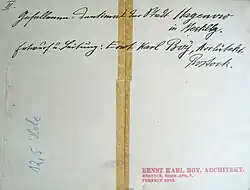 II.
Gefallenen Denkmal der Stadt Hagenow
in Mecklbg.
Entwurf u. Leitung: Ernst Karl Boy, Architekt
Rostock.
ERNST KARL BOY, ARCHITEKT,
ROSTOCK,
12,5